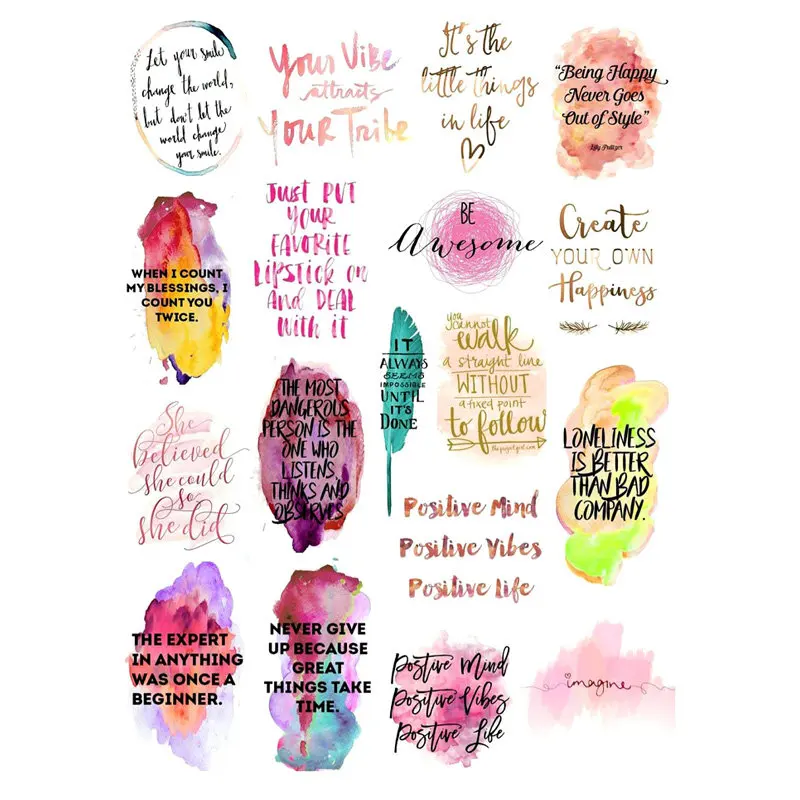 Let your smile
change the world,
but don't let the
world change
your smile.
Your Vibe
attracts
Your Tribe
It's the
little things
in life
"Being Happy
Never Goes
Out of Style"
Lilly Pulitzer
WHEN I COUNT
MY BLESSINGS, I
COUNT YOU
TWICE.
Just PUT
YOUR
FAVORITE
Lipstick on
AND DEAL
With it
BE
Awesome
Create
YOUR OWN
Happiness
IT
ALWAYS
SEEMS
IMPOSSIBLE
UNTIL
IT'S
DONE
you
cannot
walk
a straight line
WITHOUT
a fixed point
to follow
She
believed
she could
so
she did
THE MOST
DANGEROUS
PERSON IS THE
ONE WHO
LISTENS,
THINKS AND
OBSERVES
LONELINESS
IS BETTER
THAN BAD
COMPANY.
Positive Mind
Positive Vibes
Positive Life
THE EXPERT
IN ANYTHING
WAS ONCE A
BEGINNER.
NEVER GIVE
UP BECAUSE
GREAT
THINGS TAKE
TIME.
Postive Mind
Postive Vibes
Postive Life
imagine